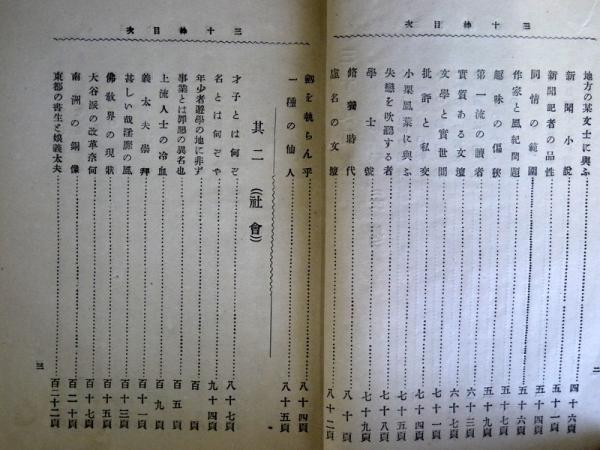 三十棒目次
地方の某文士に與ふ 四十六頁
新聞小說 五十一頁
新聞記者の品性 五十四頁
同情の範圍 五十六頁
作家と風紀問題 五十七頁
趣味の偏狹 五十九頁
第一流の讀者 六十三頁
實質ある文壇 六十七頁
文學と實世間 七十一頁
批評と私交 七十四頁
小栗風葉に與ふ 七十七頁
失戀を吹聽する者 七十八頁
學士號 七十九頁
修養時代 八十頁
虛名の文壇 八十二頁
二
三十棒目次
劍を執らん乎 八十四頁
一種の仙人 八十五頁
其二(社會)
才子とは何ぞ 八十七頁
名とは何ぞや 九十四頁
年少者遊學の地に非ず 百頁
事業とは罪惡の異名也 百五頁
上流人士の冷血 百九頁
義太夫崇拜 百十一頁
甚しい哉淫靡の風 百十三頁
佛敎界の現狀 百十五頁
大谷派の改革奈何 百十七頁
南洲の銅像 百二十頁
東都の書生と娘義太夫 百二十二頁
三